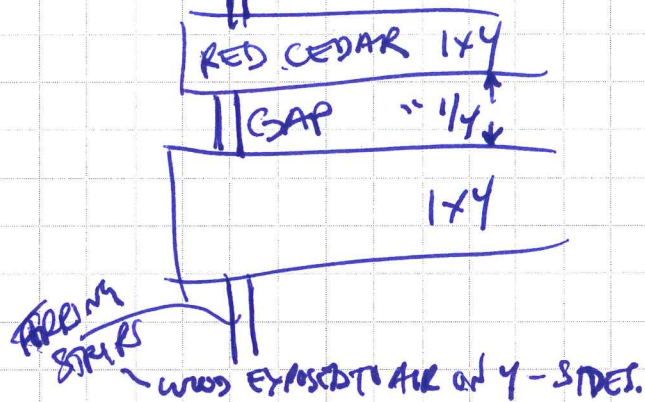 RED CEDAR 1x4
GAP ~ 1/4
1x4
FURRING
STRIPS
WOOD EXPOSED TO AIR ON 4-SIDES.